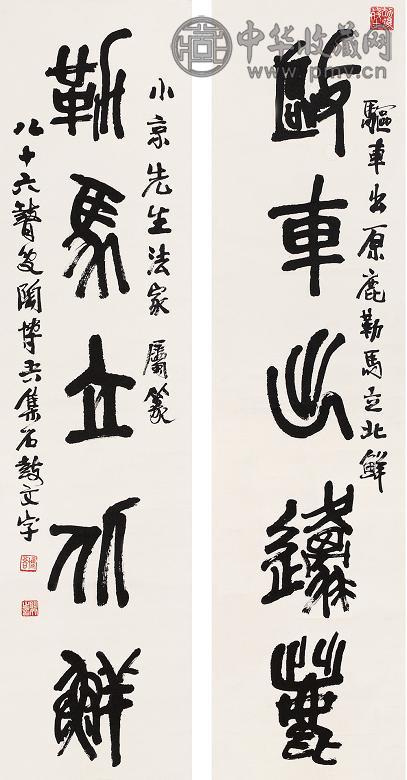 驅車出原鹿勒馬立北鮮
敺車出邍
小京先生法家 属篆
勒馬立北鮮
八十六瞽叟陶博吾集石鼓文字
中华收藏网
www.pmv.cn